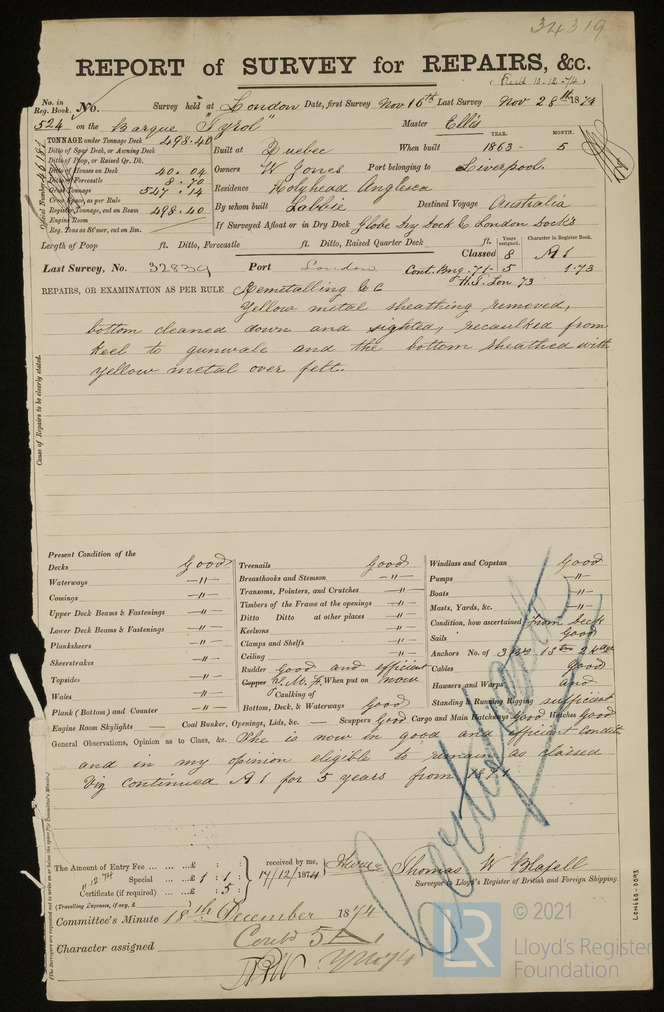 34319
REPORT of SURVEY for REPAIRS, &c.
(Recd 10.12.74)
No. in Reg. Book. No. Survey held at London Date, first Survey Nov 16th Last Survey Nov 28th 1874
524 on the Barque "Tyrol" Master Ellis
TONNAGE under Tonnage Deck 498.40
Ditto of Spar Deck, or Awning Deck
Ditto of Poop, or Raised Qr. Dk.
Ditto of Houses on Deck 40.04
Ditto of Forecastle 8.70
Gross Tonnage 547.14
Crew Space, as per Rule
Register Tonnage, cut on Beam 498.40
Engine Room
Reg. Tons as St'mer, cut on Bm.
Official Number
YEAR. MONTH.
Built at Quebec When built 1863 - 5
Owners W Jones Port belonging to Liverpool
Residence Holyhead Anglesea
By whom built Labbie Destined Voyage Australia
If Surveyed Afloat or in Dry Dock Globe Dry Dock & London Docks
Length of Poop ft. Ditto, Forecastle ft. Ditto, Raised Quarter Deck ft.
Years assigned. Character in Register Book.
Classed 8 A1
Last Survey, No. 32839 Port London Cont. Bng. 71-5 1.73
H.S. Lon 73
REPAIRS, OR EXAMINATION AS PER RULE Remetalling &c
Yellow metal sheathing removed,
bottom cleaned down and sighted, recaulked from
keel to gunwale and the bottom sheathed with
yellow metal over felt.
Cause of Repairs to be clearly stated.
Present Condition of the
Decks Good
Waterways —"—
Comings —"—
Upper Deck Beams & Fastenings —"—
Lower Deck Beams & Fastenings —"—
Planksheers —"—
Sheerstrakes —"—
Topsides —"—
Wales —"—
Plank (Bottom) and Counter —"—
Treenails Good
Breasthooks and Stemson —"—
Transoms, Pointers, and Crutches —"—
Timbers of the Frame at the openings —"—
Ditto Ditto at other places —"—
Keelsons —"—
Clamps and Shelfs —"—
Ceiling —"—
Rudder Good and efficient
Copper Y.M.F. When put on now
Caulking of
Bottom, Deck, & Waterways Good
Windlass and Capstan Good
Pumps —"—
Boats —"—
Masts, Yards, &c. —"—
Condition, how ascertained From Deck
Sails Good
Anchors No. of
Cables Good
Hawsers and Warps and
Standing & Running Rigging sufficient
Engine Room Skylights — Coal Bunker, Openings, Lids, &c. — Scuppers Good Cargo and Main Hatchways Good Hatches Good
General Observations, Opinion as to Class, &c. She is now in good and efficient condit
and in my opinion eligible to remain as classed
viz continued A1 for 5 years from 1871
The Amount of Entry Fee ... ... ... £ : :
Special ... £ 1 : 1 :
Certificate (if required) ... £ : 5 :
(Travelling Expenses, if any, £ )
received by me,
17/12/1874
Thomas W Blafell
Surveyor to Lloyd's Register of British and Foreign Shipping.
Committee's Minute 18th December 1874
Character assigned Contd 5 A 1
(The Surveyors are requested not to write on or below the space for Committee's Minute.)
LON660-0093
LR
© 2021
Lloyd's Register
Foundation